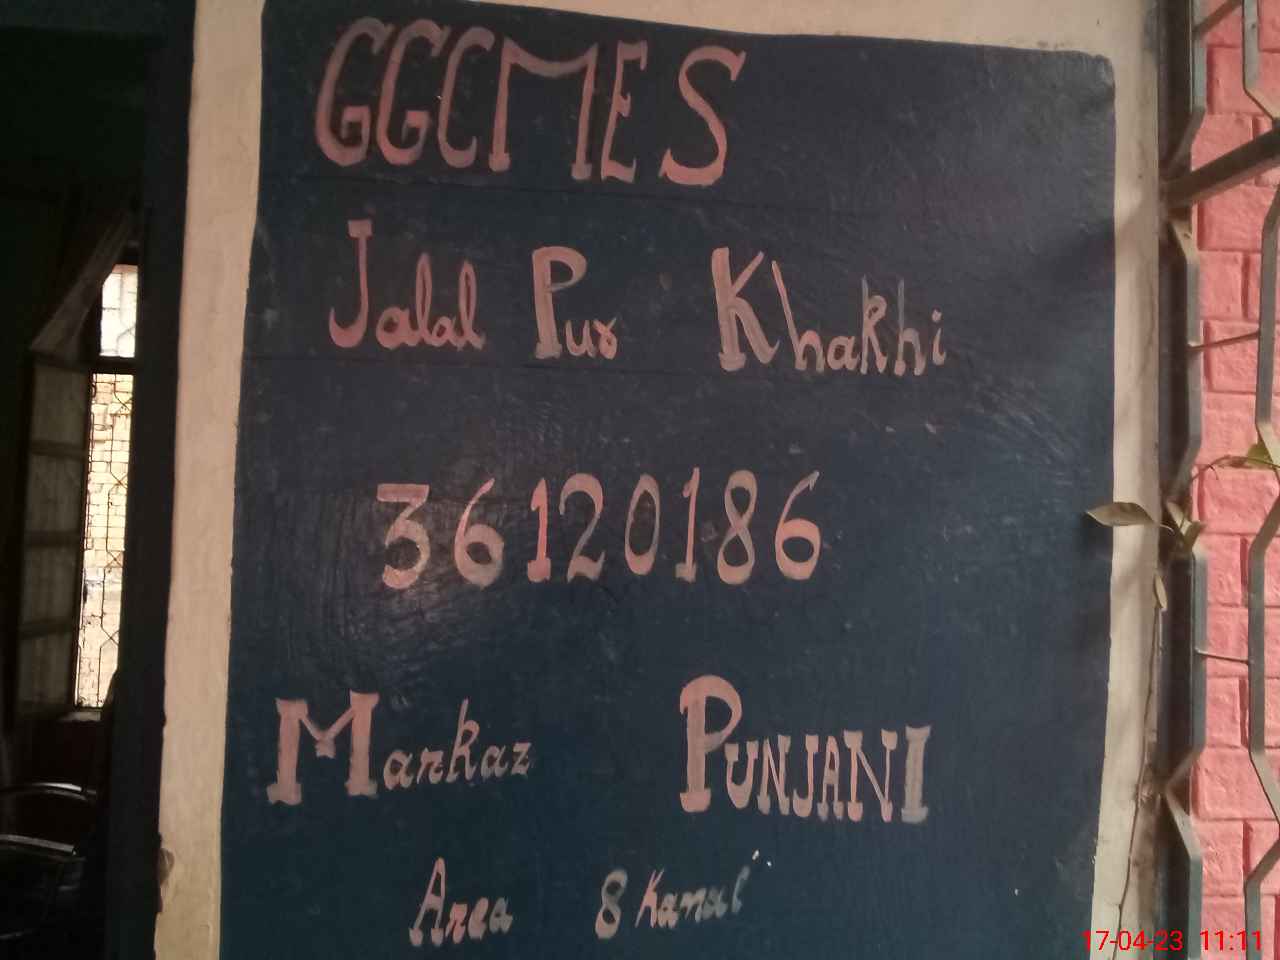 GGCMES
Jalal Pur Khakhi
36120186
Markaz PUNJANI
Area 8 Kanal
17-04-23 11:11